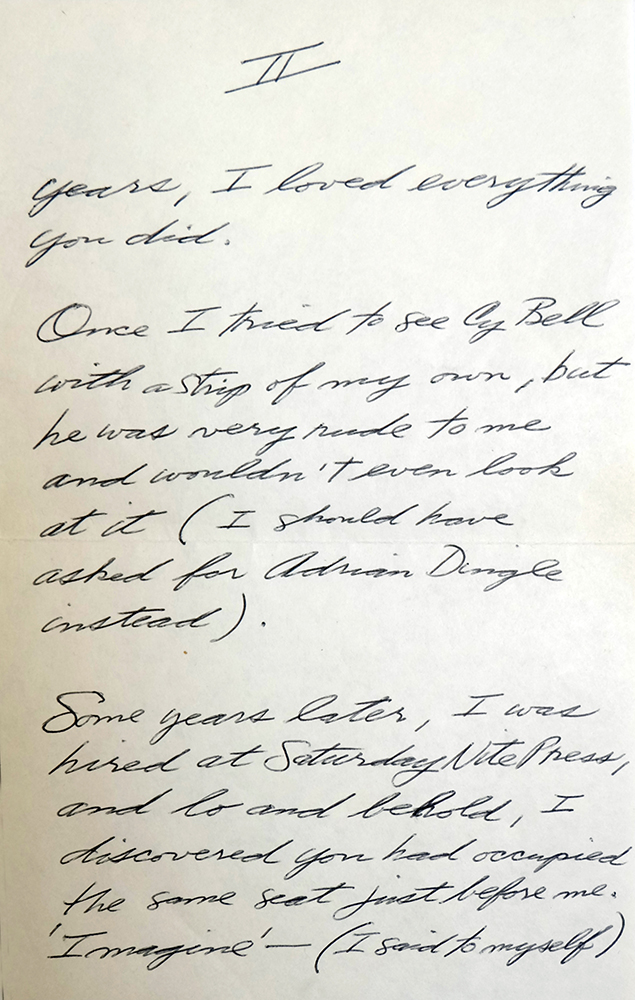 II
years, I loved everything
you did.
Once I tried to see Cy Bell
with a strip of my own, but
he was very rude to me
and wouldn't even look
at it (I should have
asked for Adrian Dingle
instead).
Some years later, I was
hired at Saturday Nite Press,
and lo and behold, I
discovered you had occupied
the same seat just before me.
'Imagine' — (I said to myself)